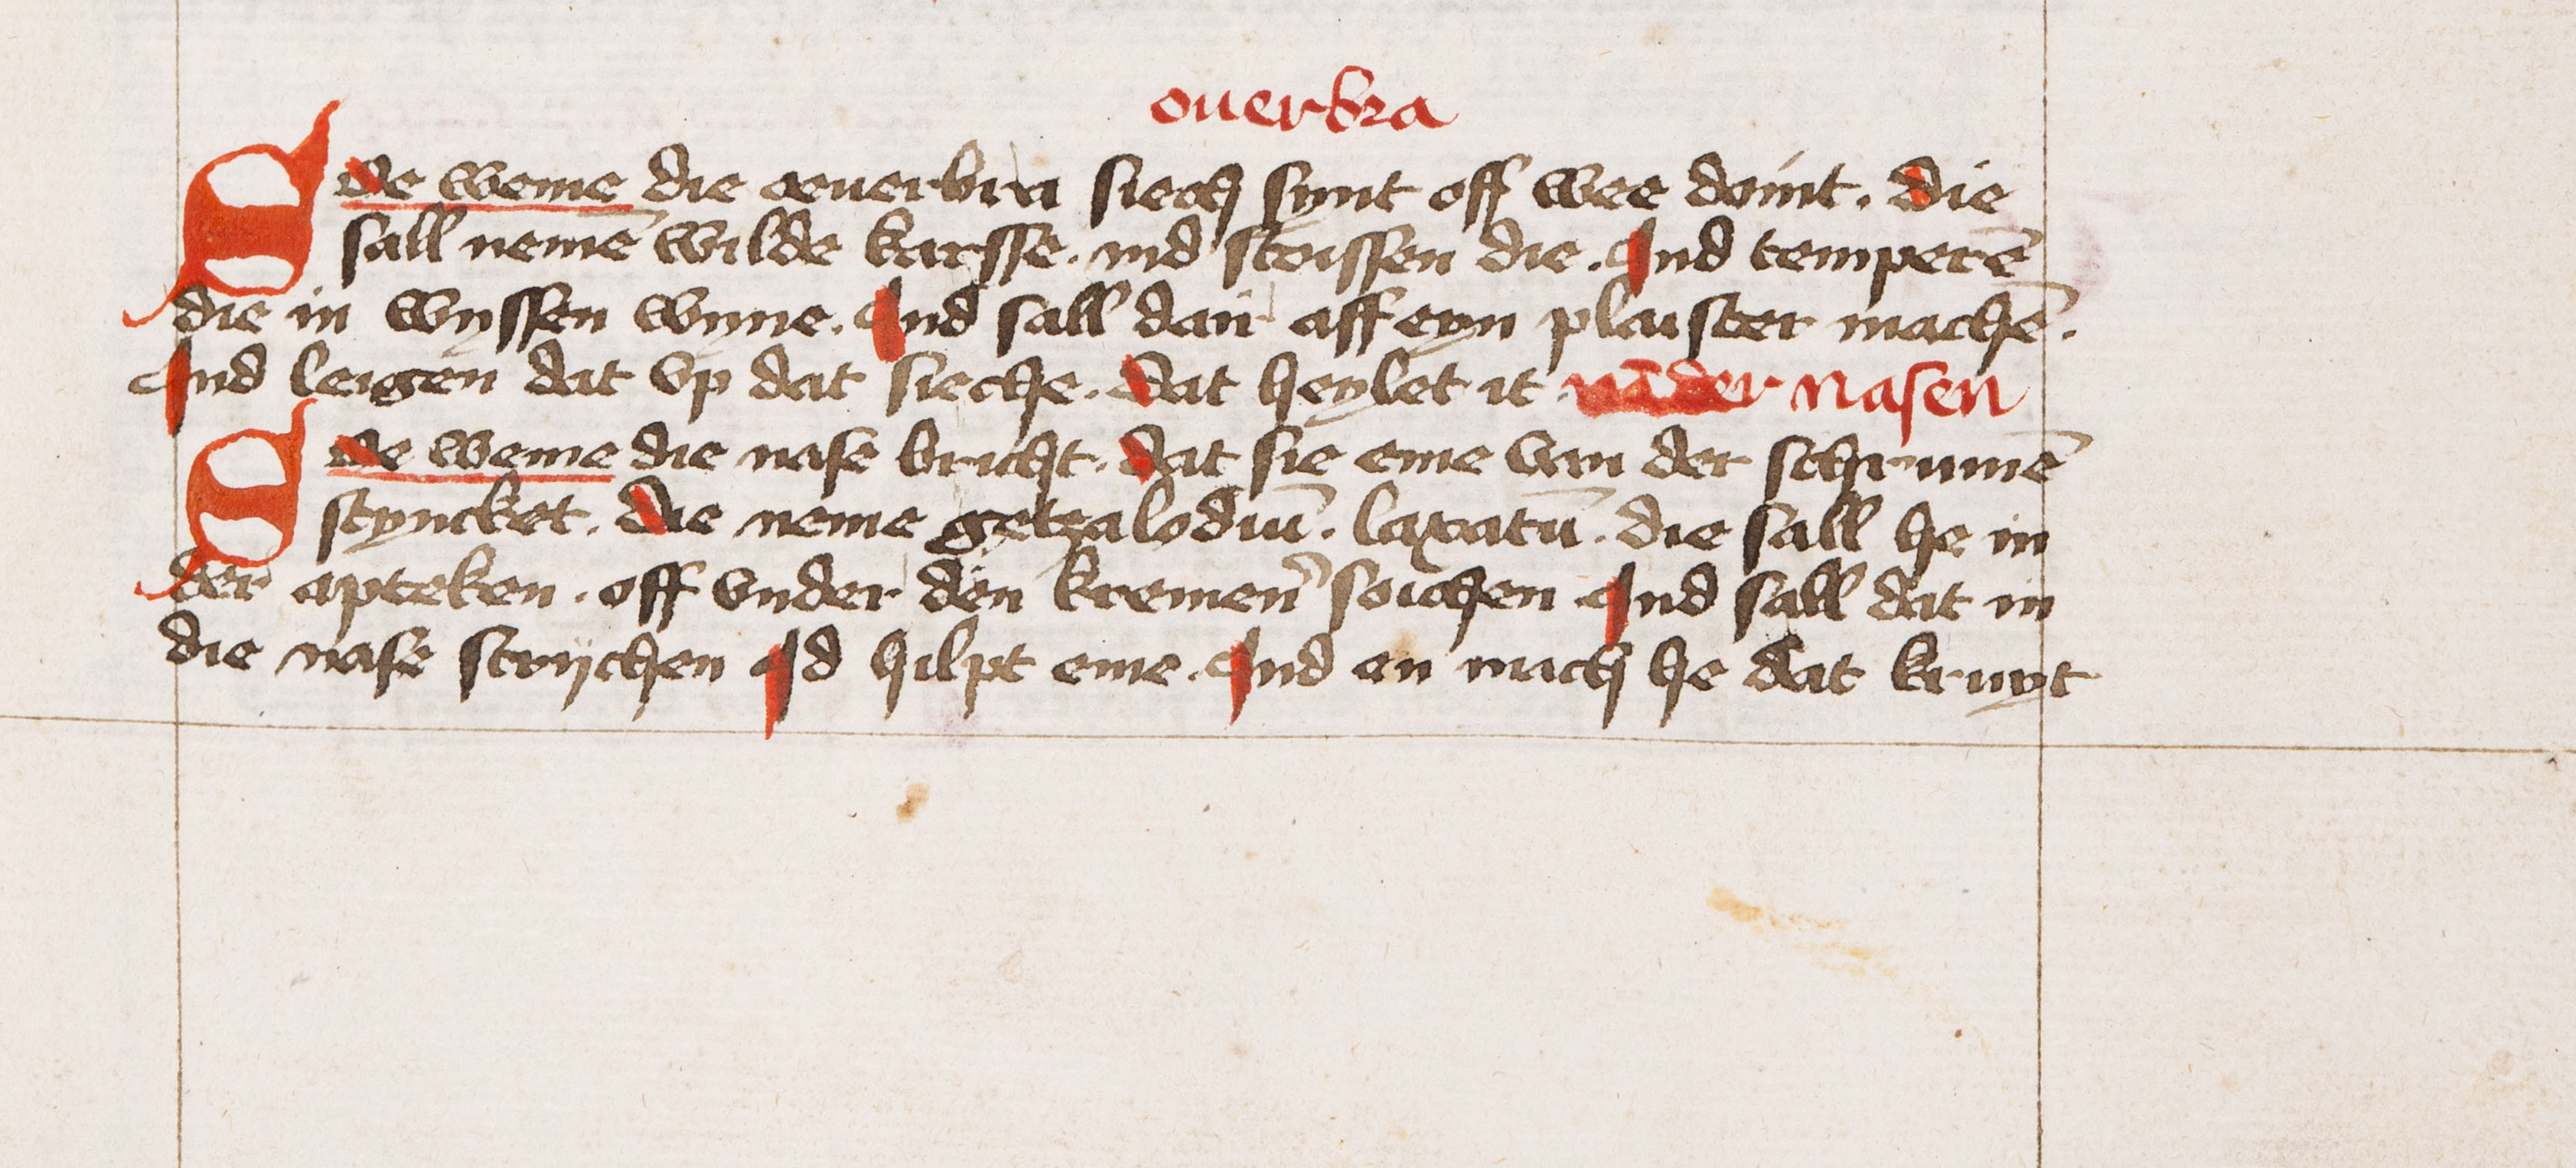 ouerbra
Ode weme die oeuerbra siech synt off wee doint. die
sall nemē wilde karsse. ind stoissen die. Ind temperē
die in wyssen wyne. Ind sall dan aff eyn plaister machē.
Ind leigen dat vp dat sieche. Dat heylet it. nader nasen
Ode weme die nase bricht. Dat sie eme van der schrumē
styncket. Die neme getzalodiū. laxatū. die sall he in
der apteken. off vnder den kremen soichen Ind sall dat in
die nase strijchen Id hilpt eme. Ind en mach he dat kruyt